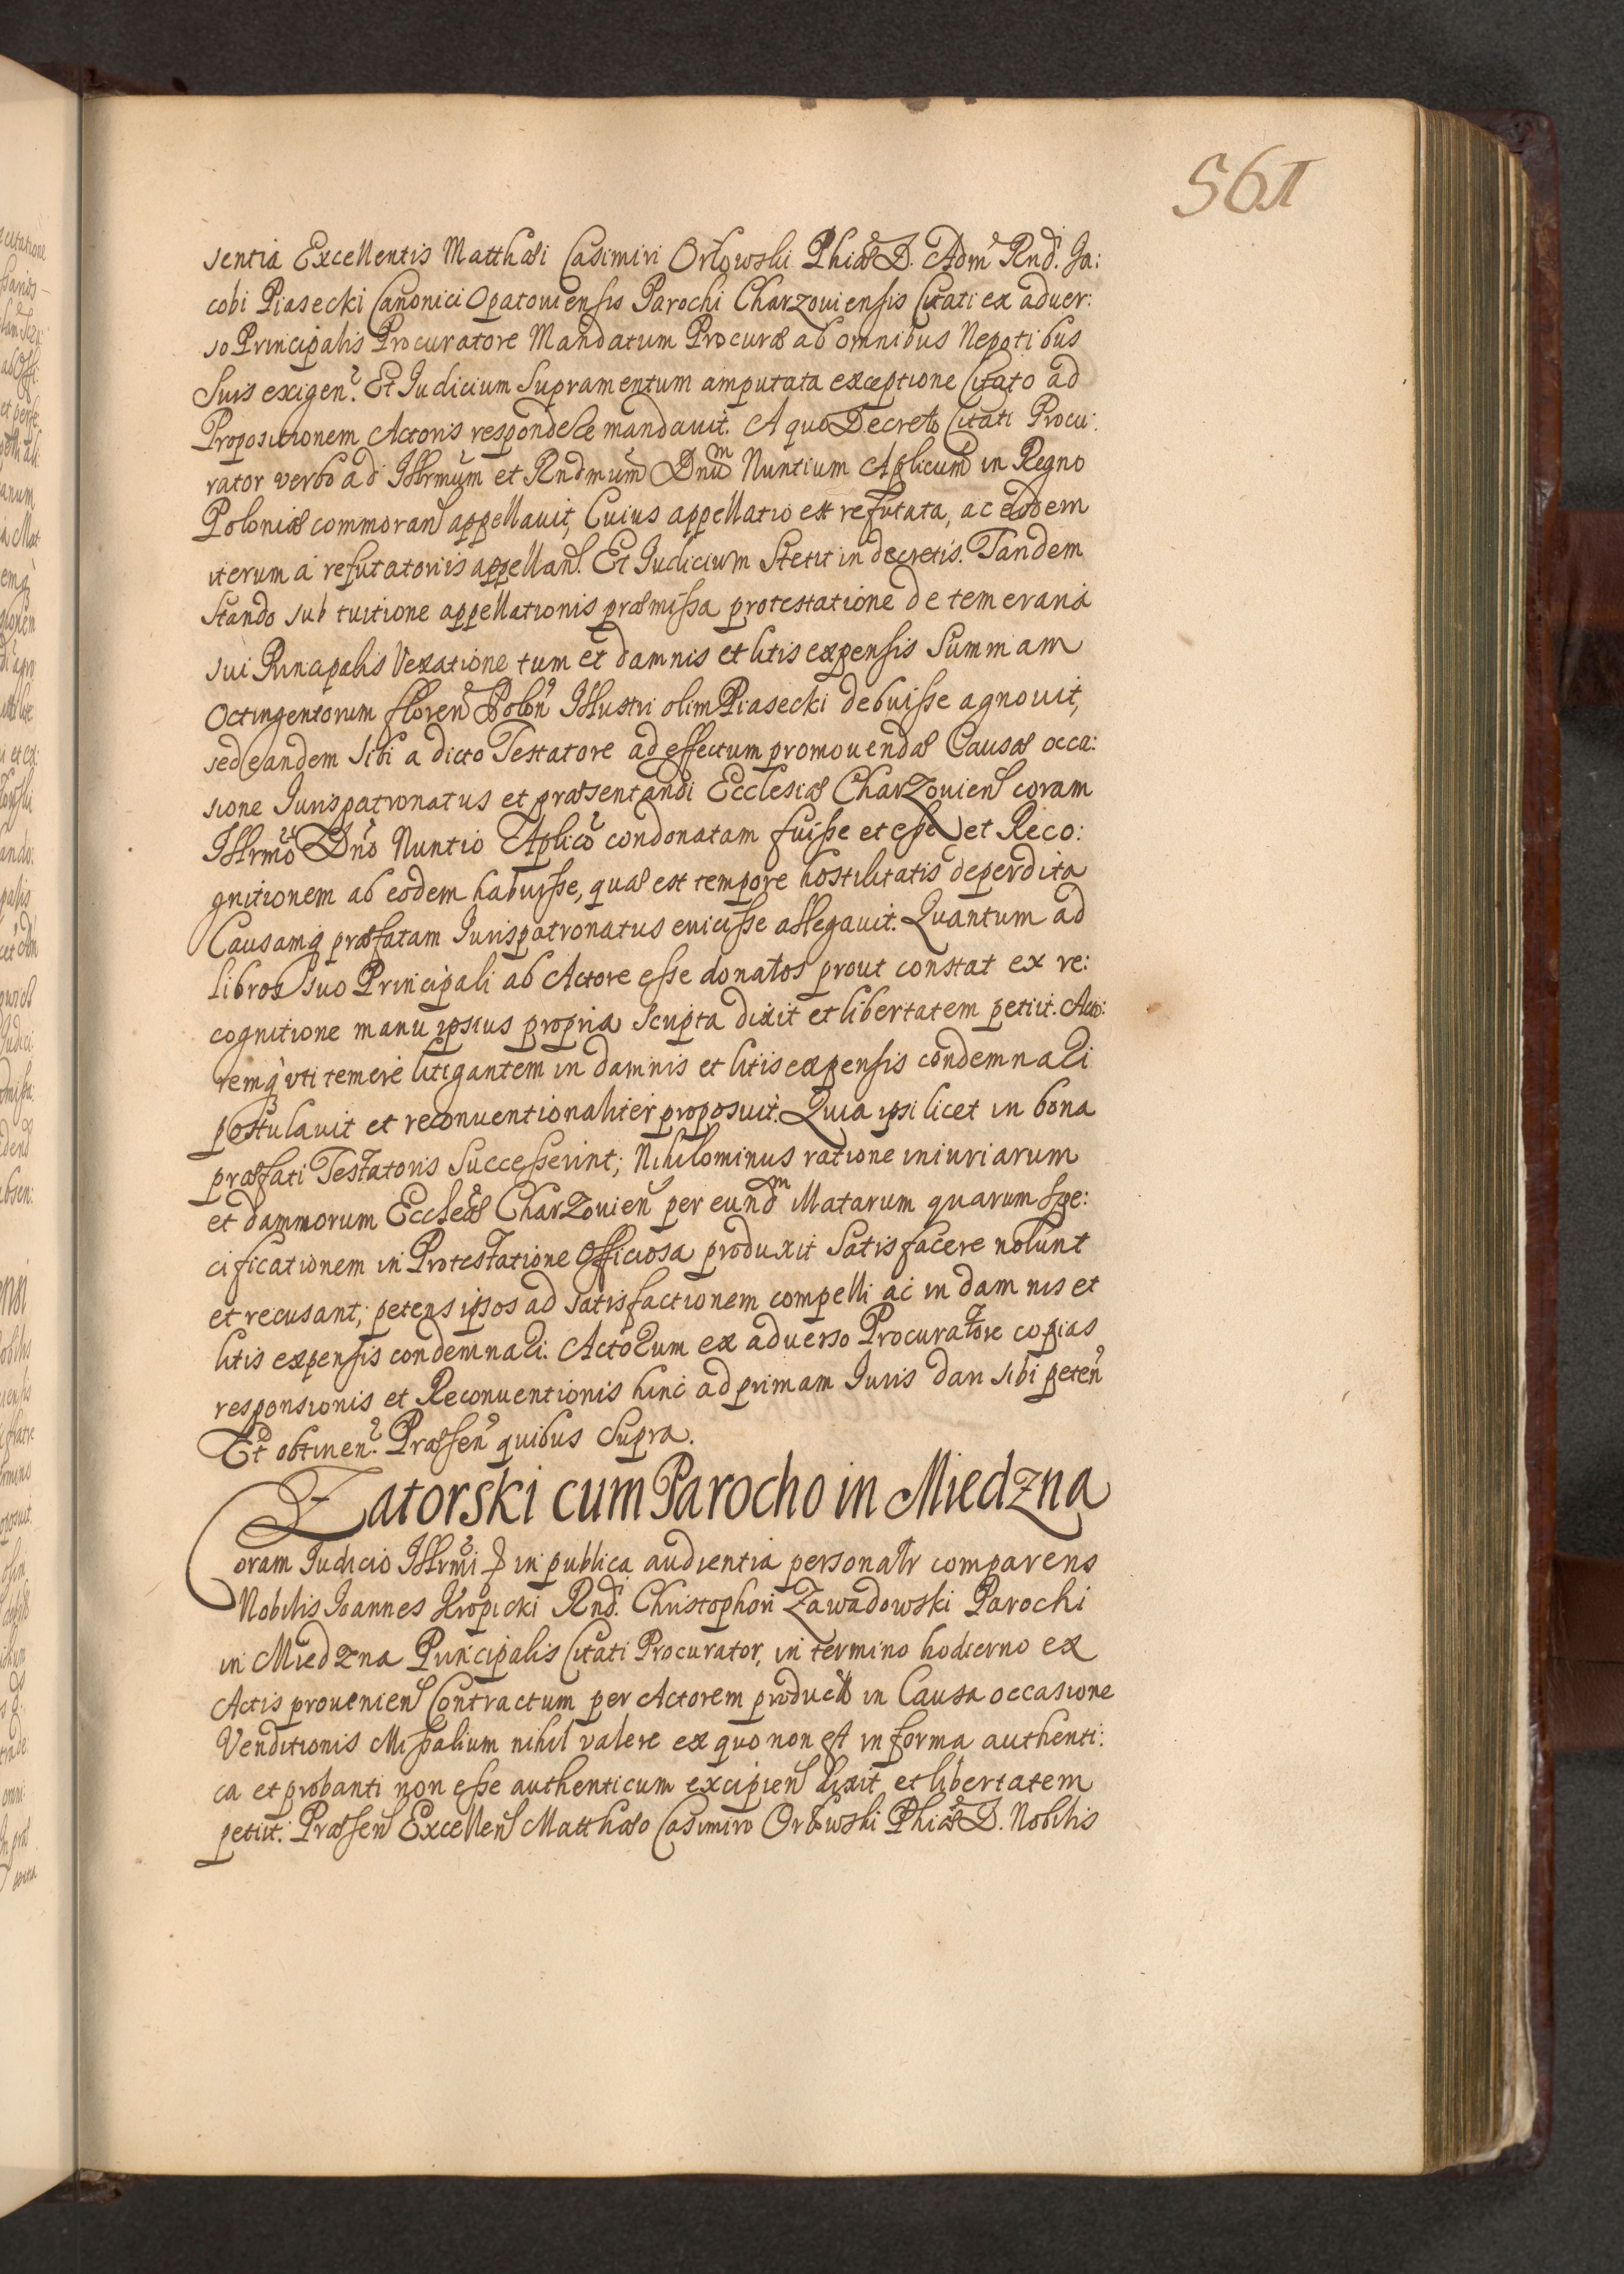 561
sentia Excellentis Matthæi Casimiri Orłowski Phiæ D. Adm Rnd. Ja:
cobi Piasecki Canonici Opatouiensis Parochi Charzouiensis Citati ex aduer:
so Principalis Procuratore Mandatum Procuræ ab omnibus Nepotibus
Suis exigen. Et Iudicium Supramentum amputata exceptione Citato ad
Propositionem Actoris respondere mandauit. A quo Decreto Citati Procu:
rator verbo ad Illrmum et Rndmum Dnum Nuntium Aplicum in Regno
Poloniæ commoran appellauit, Cuius appellatio est refutata, ac eodem
iterum á refutatoriis appellan. Et Iudicium Stetit in decretis. Tandem
Stando sub tuitione appellationis præmissa protestatione de temeraria
sui Principalis Vexatione tum et damnis et litis expensis Summam
Octingentorum floren Polon Illustri olim Piasecki debuisse agnouit,
sed eandem sibi a dicto Testatore ad effectum promouendæ Causæ occa:
sione Iurispatronatus et præsentandi Ecclesiæ Charzouien coram
Illrmo Dno Nuntio Aplico condonatam fuisse et esse et Reco:
gnitionem ab eodem habuisse, quæ est tempore hostilitatis deperdita
Causamq præfatam Iurispatronatus euicisse allegauit. Quantum ad
libros suo Principali ab Actore esse donatos prout constat ex re:
cognitione manu ipsius propria Scripta dixit et libertatem petiit. Acto:
remq vti temerè litigantem in damnis et litis expensis condemnari
postulauit et reconuentionaliter proposuit. Quia ipsi licet in bona
præfati Testatoris Successerint; Nihilominus ratione iniuriarum
et damnorum Ecclesiæ Charzouien per eundm illatarum quarum spe:
cificationem in Protestatione Officiosa produxit Satisfacere nolunt
et recusant; petens ipsos ad satisfactionem compelli ac in damnis et
litis expensis condemnari. Actorum ex aduerso Procuratore copias
responsionis et Reconuentionis hinc ad primam Iuris dari sibi peten
Et obtinen. Præsen quibus Supra.
Zatorski cum Parocho in Miedzna
Coram Iudicio Illrmi in publica audientia personalr comparens
Nobilis Ioannes Kropicki Rnd. Christophori Zawadowski Parochi
in Miedzna Principalis Citati Procurator, in termino hodierno ex
Actis prouenien Contractum per Actorem product in Causa occasione
Venditionis Missalium nihil valere ex quo non est in forma authenti:
ca et probanti non esse authenticum excipien dixit et libertatem
petiit. Præsen Excellen Matthæo Casimiro Orłowski Phiæ D. Nobilis